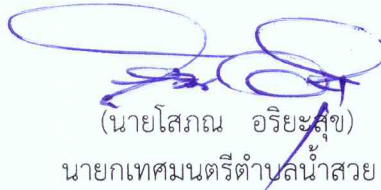 (นายโสภณ อริยะสุข)
นายกเทศมนตรีตำบลน้ำสวย